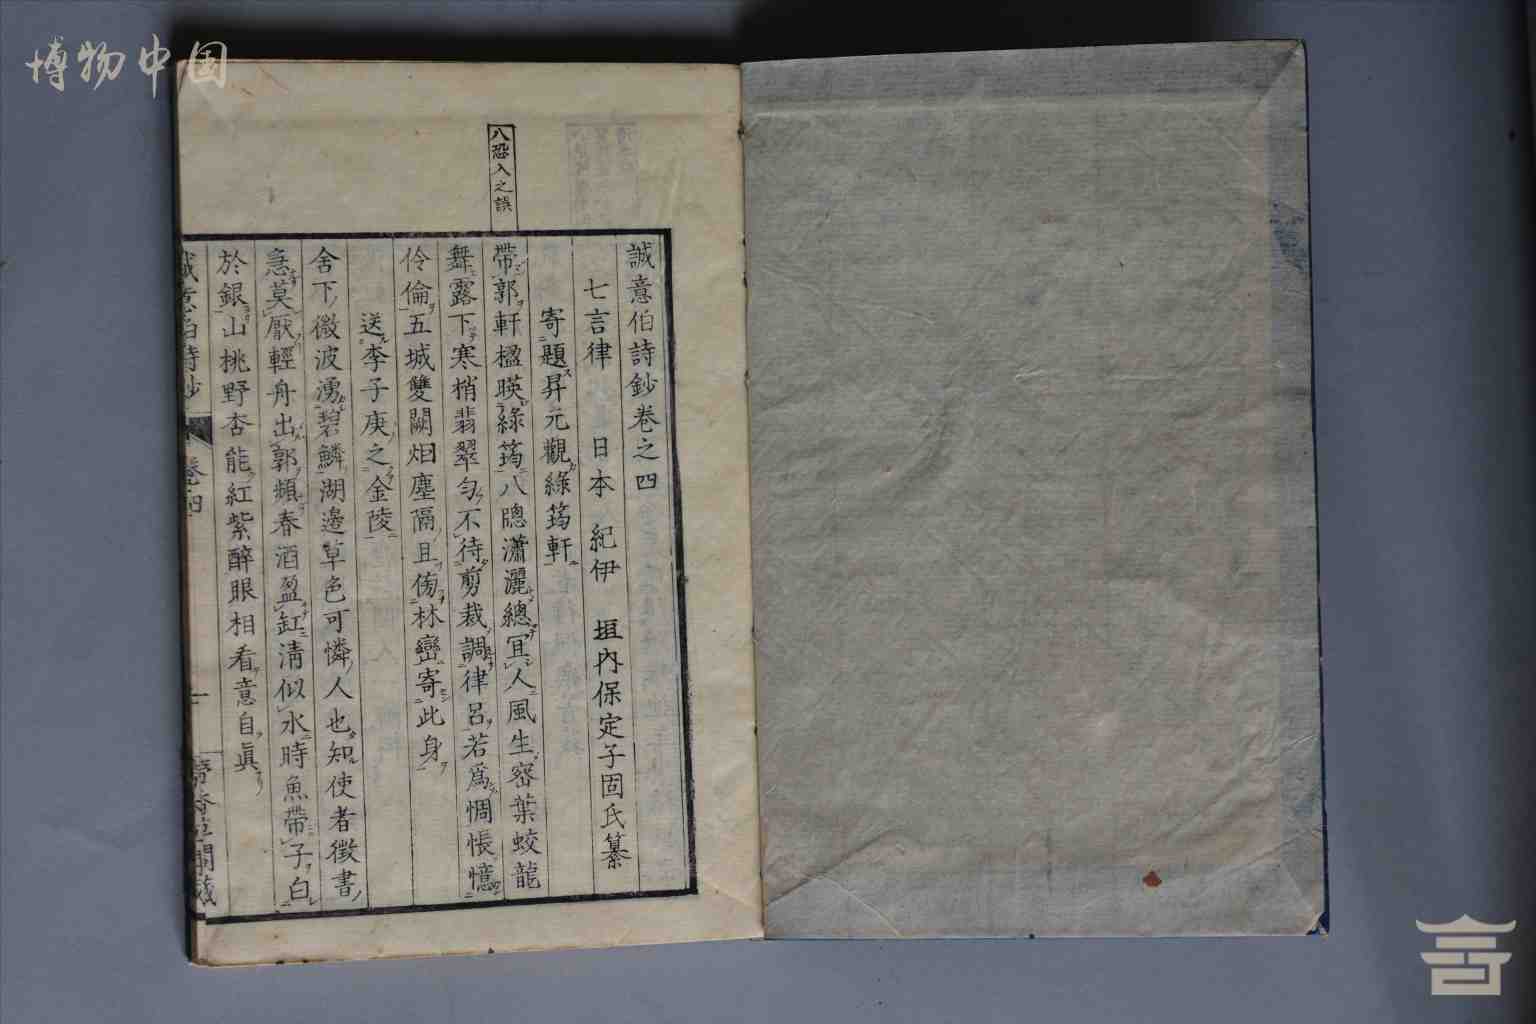 博物中国
八恐入之誤
誠意伯詩鈔卷之四
七言律 日本 紀伊 垣內保定子固氏纂
寄題昇元觀綠筠軒
帶郭軒楹暎綠筠八牕瀟灑總冝人風生密葉蛟龍
舞露下寒梢翡翠勻不待剪裁調律呂若爲惆悵憶
伶倫五城雙闕烟塵隔且傍林巒寄此身
送李子庚之金陵
舍下微波湧碧鱗湖邉草色可憐人也知使者徴書
急莫厭輕舟出郭頻春酒盈缸清似水時魚帶子白
於銀山桃野杏能紅紫醉眼相看意自眞
誠意伯詩鈔 卷四 一